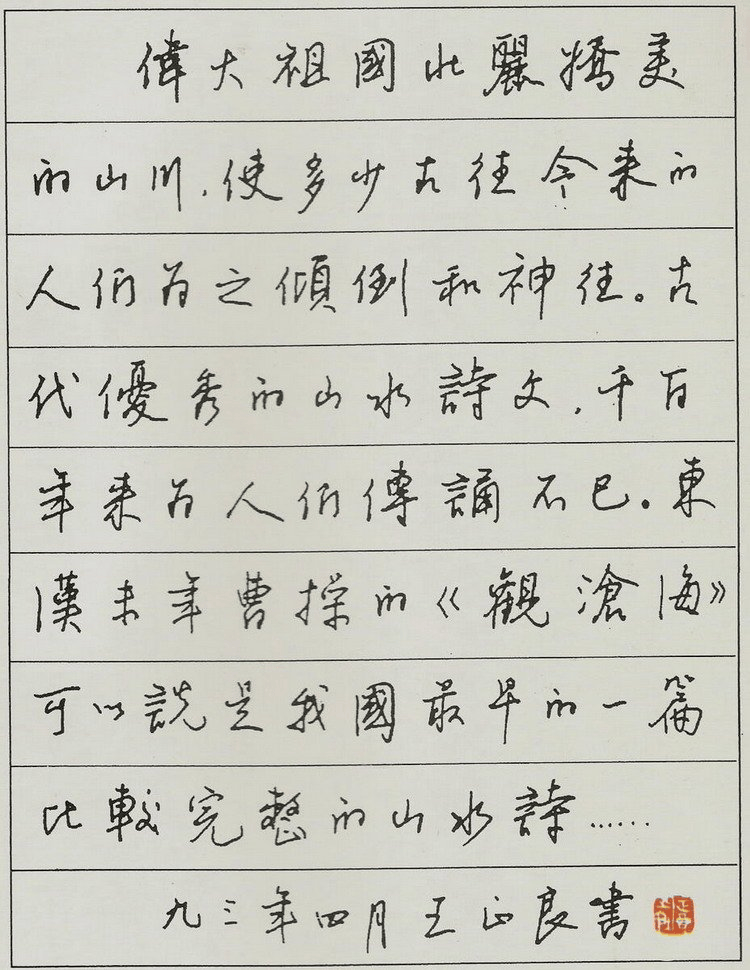 偉大祖國壯麗嬌美
的山川，使多少古往今來的
人們為之傾倒和神往。古
代優秀的山水詩文，千百
年來為人們傳誦不已。東
漢末年曹操的《觀滄海》
可以說是我國最早的一篇
比較完整的山水詩……
九三年四月王正良書